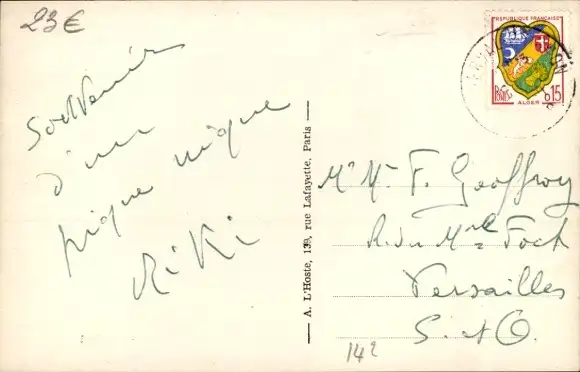 23€
Souvenir
d'un
pique nique
RiKi
A. L'Hoste, 139, rue Lafayette, Paris
REPUBLIQUE FRANÇAISE
POSTES 0,15
ALGER
Mr M. F. Geoffroy
R. du Mal Foch
Versailles
S. et O.
142